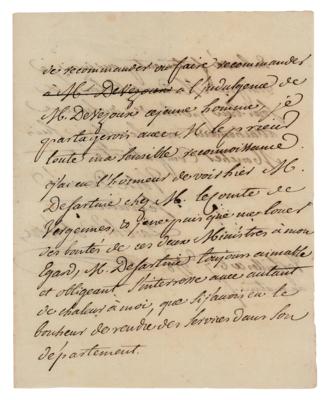 de recommander ou faire recommander
à M. Devejoux à l'indulgence de
M. Devejoux ce jeune homme, je
partagerois avec M. le prieur
toute ma sensible reconnoissance.
j'ai eu l'honneur de voir hier M.
Desartine chez M. le Comte de
Vergennes, & je ne puis que me louer
des bontés de ces deux Ministres à mon
Egard, M. Desartine toujours aimable
et obligeant s'interresse avec autant
de chaleur à moi, que si j'avois eu le
bonheur de rendre des services dans son
département.